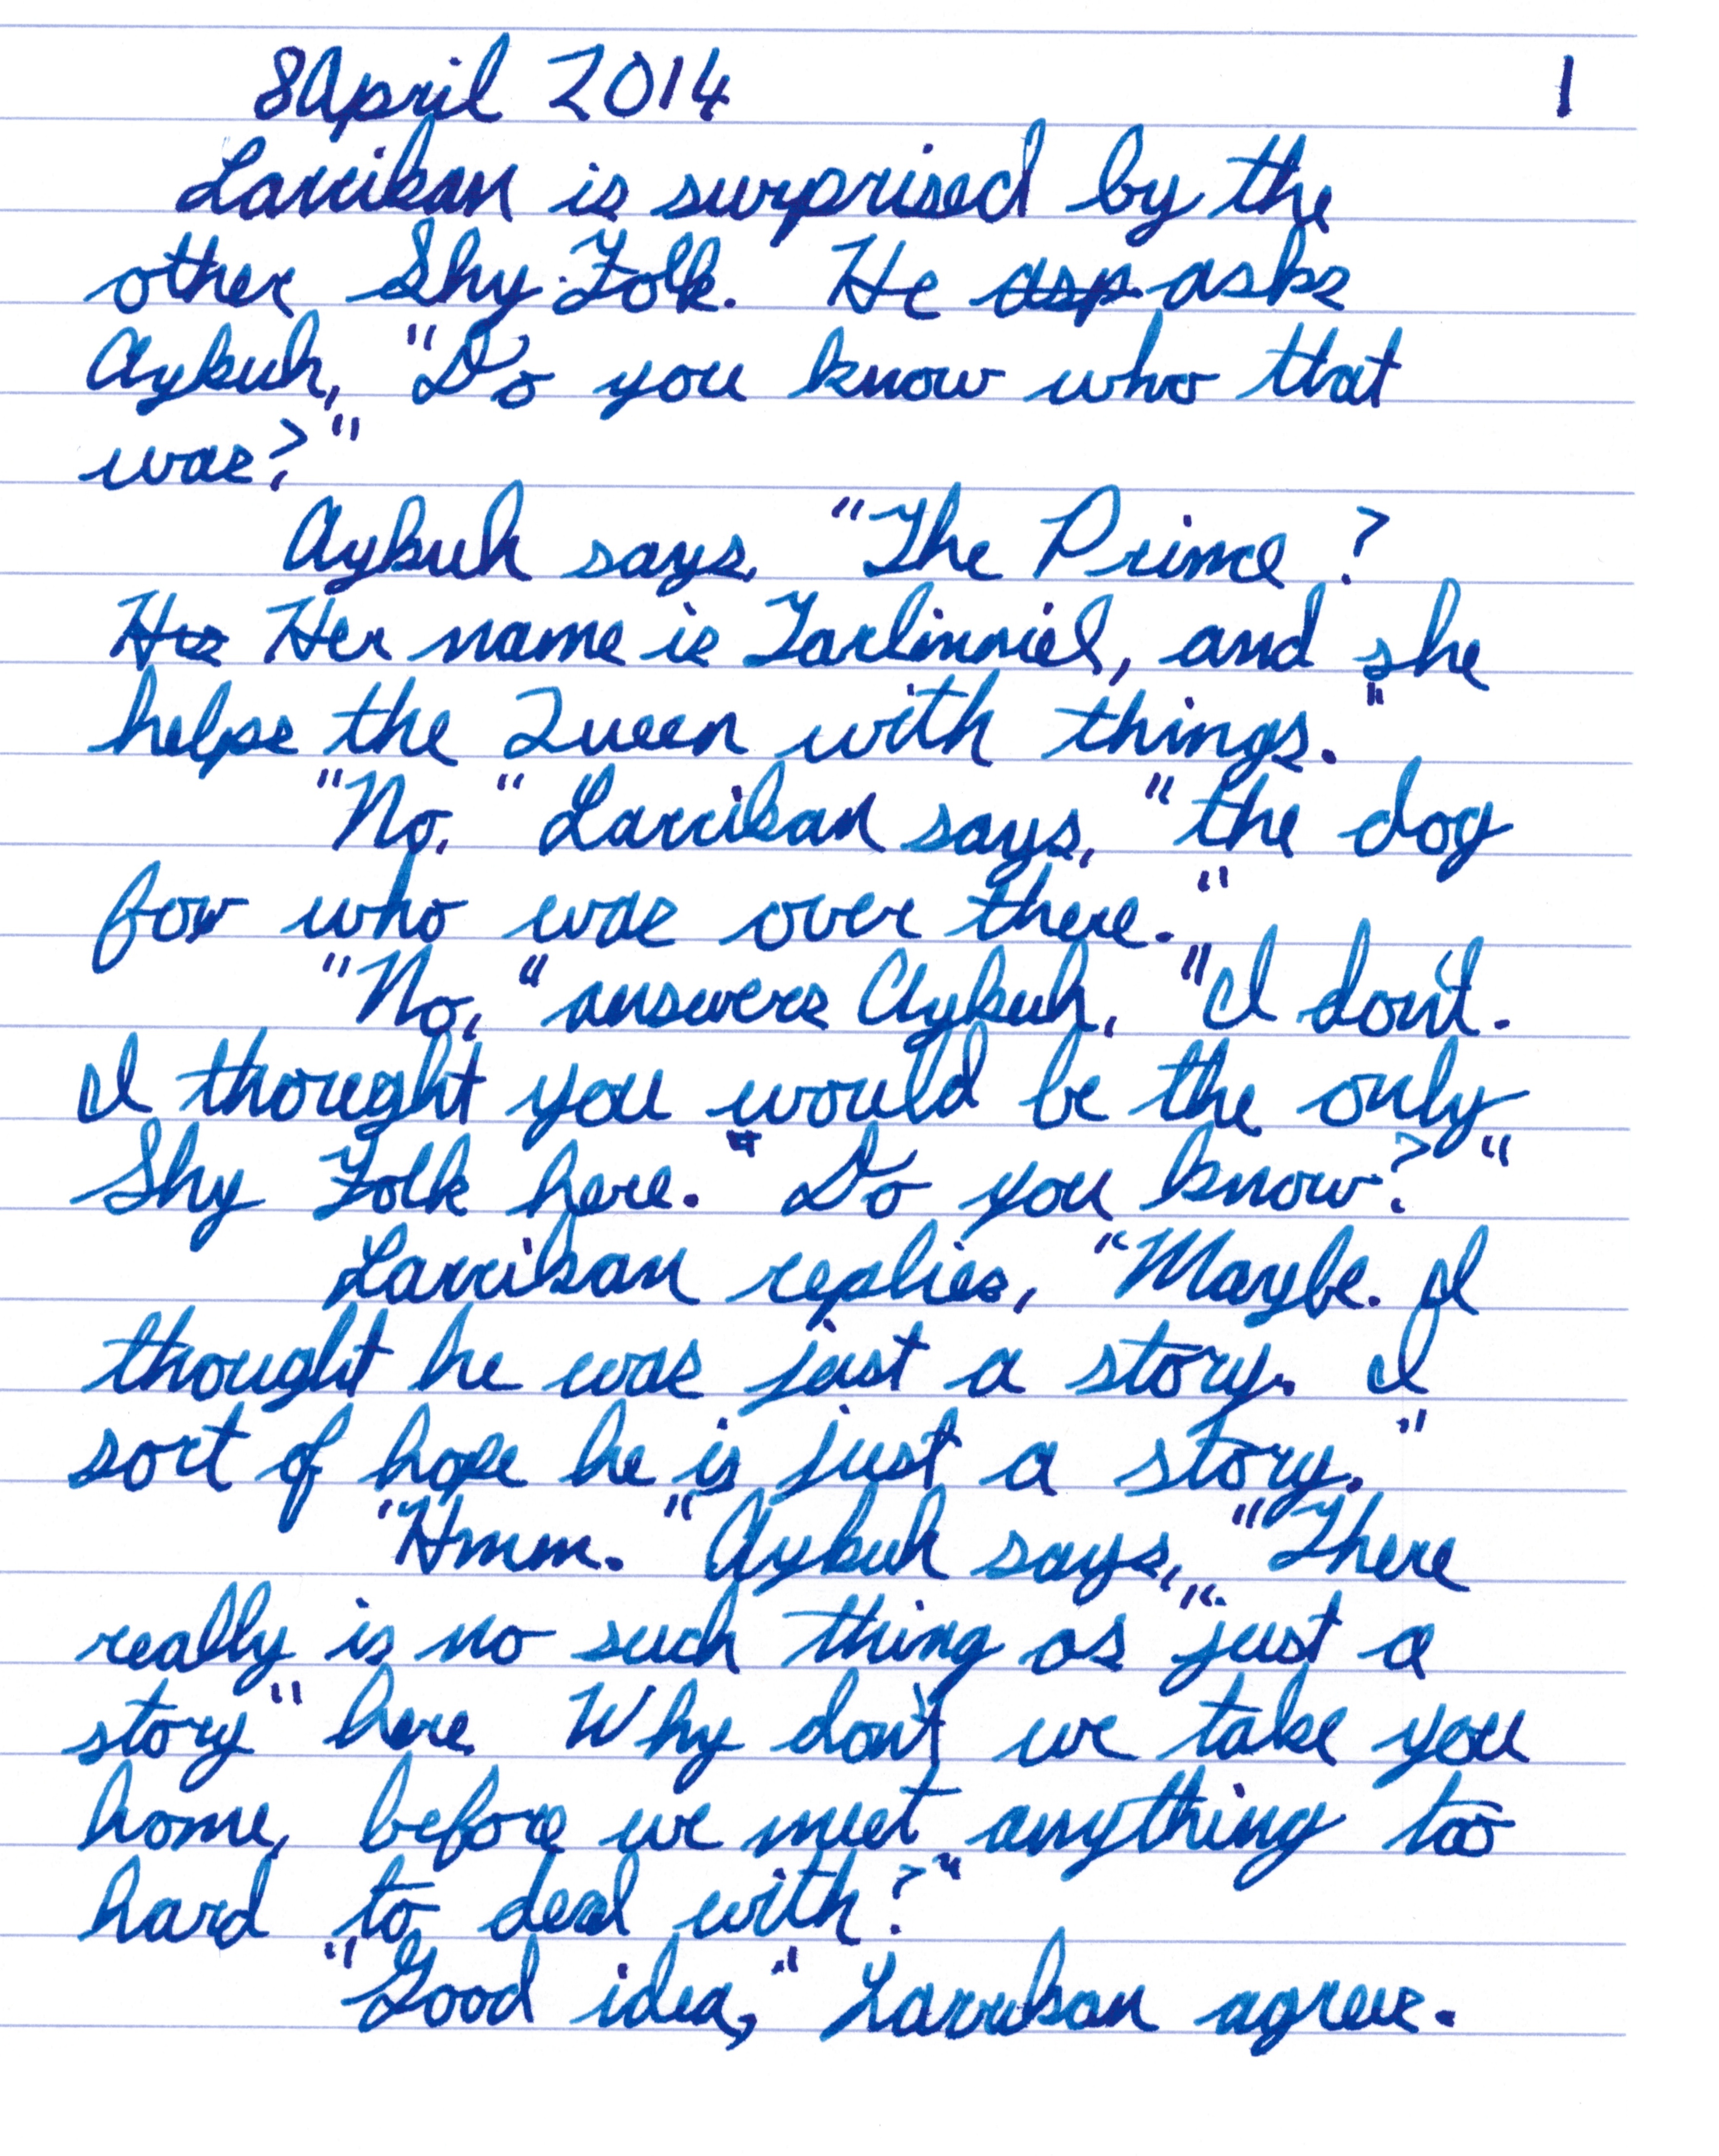 8 April 2014 1
Larrikan is surprised by the
other Shy Folk. He asp asks
Aykuh, "Do you know who that
was?"
Aykuh says, "The Prince?
His Her name is Tarlinniel, and she
helps the Queen with things."
"No," Larrikan says, "the dog
fox who was over there."
"No," answers Aykuh, "I don't.
I thought you would be the only
Shy Folk here." Do you know?"
Larrikan replies, "Maybe. I
thought he was just a story. I
sort of hope he is just a story."
"Hmm." Aykuh says, "There
really is no such thing as "just a
story" here. Why don't we take you
home, before we meet anything too
hard to deal with?"
"Good idea," Larrikan agrees.